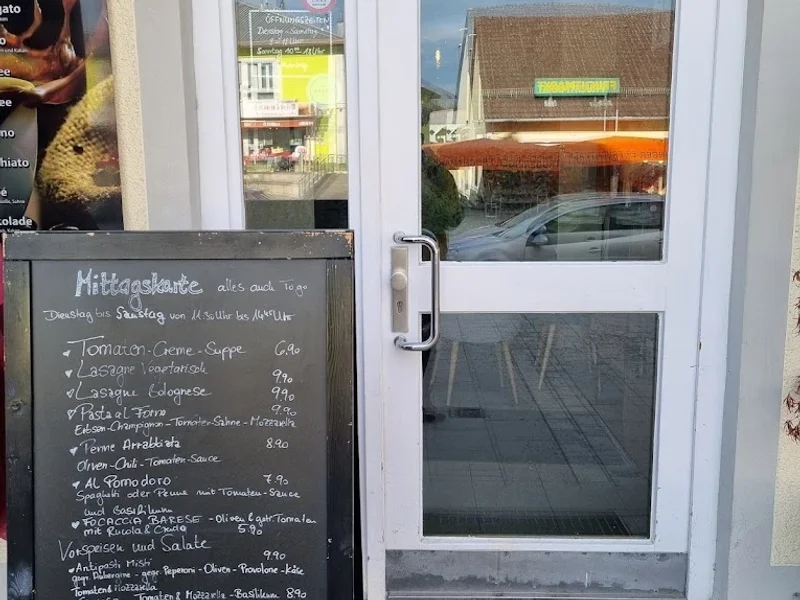 gato
ee
ee
no
hiato
é
olade
ÖFFNUNGSZEITEN
Dienstag - Samstag
Mittagskarte alles auch To go
Dienstag bis Samstag von 11.30 Uhr bis 14.45 Uhr
Tomaten-Creme-Suppe 6,90
Lasagne Vegetarisch 9,90
Lasagne Bolognese 9,90
Pasta al Forno 9,90
Erbsen-Champignon-Tomaten-Sahne-Mozzarella
Penne Arrabbiata 8,90
Oliven-Chili-Tomaten-Sauce
Al Pomodoro 7,90
Spaghetti oder Penne mit Tomaten-Sauce
und Basilikum
FOCACCIA BARESE - Oliven & getr. Tomaten
mit Rucola & Cruda 5,90
Vorspeisen und Salate
Antipasti Misti 9,90
gegr. Aubergine - gegr. Peperoni - Oliven - Provolone - Käse
Tomaten & Mozzarella
Tomaten & Mozzarella - Basilikum 8,90